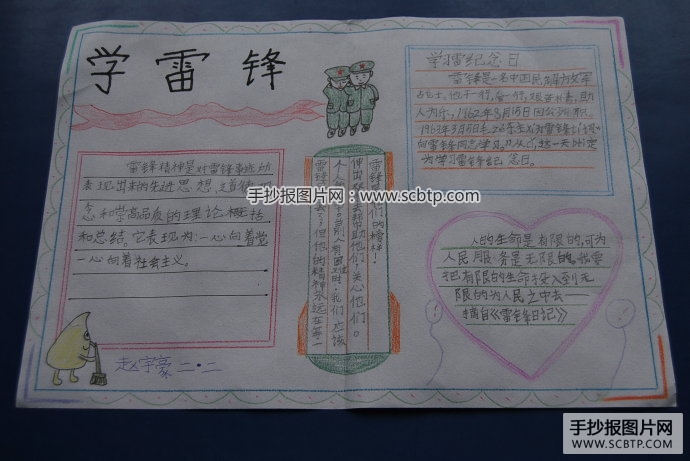 学雷锋
学习雷锋纪念日
雷锋是一名中国
人为乐,1962年8月15日因公殉职。
1963年3月5日毛
向雷锋同志学习,从此,这一天
为学习雷锋纪念日。
雷锋精神是对雷锋事迹所
表现出来的先进思想,道德
念和崇高品质的理论概括
和总结。它表现为:一心向着党
一心向着社会主义。
雷锋是我们的榜样!
伸出双手去帮助他们!关心他们。
个人当别人有困难时,我们应该
但他的精神永远在第一
人的生命是有限的,可为
人民服务是无限的,我要
把有限的生命投入到无
限的为人民之中去——
摘自《雷锋日记》
赵宇豪 二·二
手抄报图片网
www.scbtp.com
手抄报图片网
WWW.SCBTP.COM